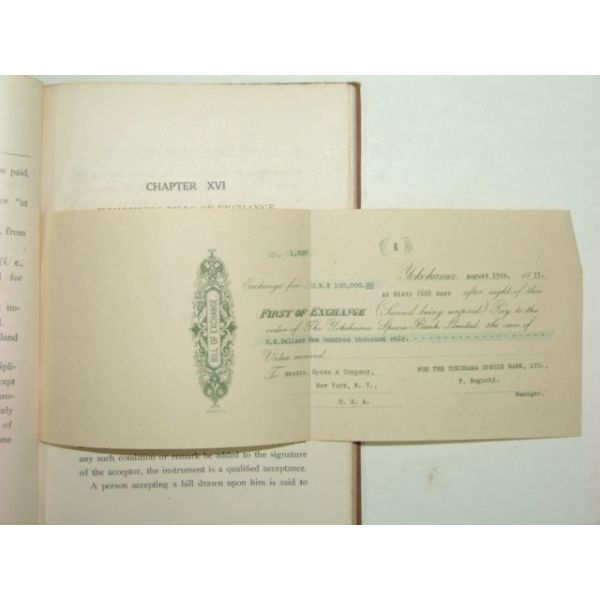 e paid,
or "at
from
(i. e.,
d for
t im-
land
cipli-
cept
ans-
ely
of
one
CHAPTER XVI
BILLS OF EXCHANGE
1
No 1,000
Yokohama, August 15th. 1933.
Exchange for U.S.$ 100,000.00
at Sixty (60) days after sight of this
FIRST OF EXCHANGE (Second being unpaid) Pay to the
order of The Yokohama Specie Bank Limited, the sum of
U.S.Dollars One hundred thousand only.
Value received
To Messrs. & Company,
New York, N. Y.,
U. S. A.
FOR THE YOKOHAMA SPECIE BANK, LTD.,
Y. Noguchi.
Manager.
BILL OF EXCHANGE
any such condition or remark be added to the signature
of the acceptor, the instrument is a qualified acceptance.
A person accepting a bill drawn upon him is said to